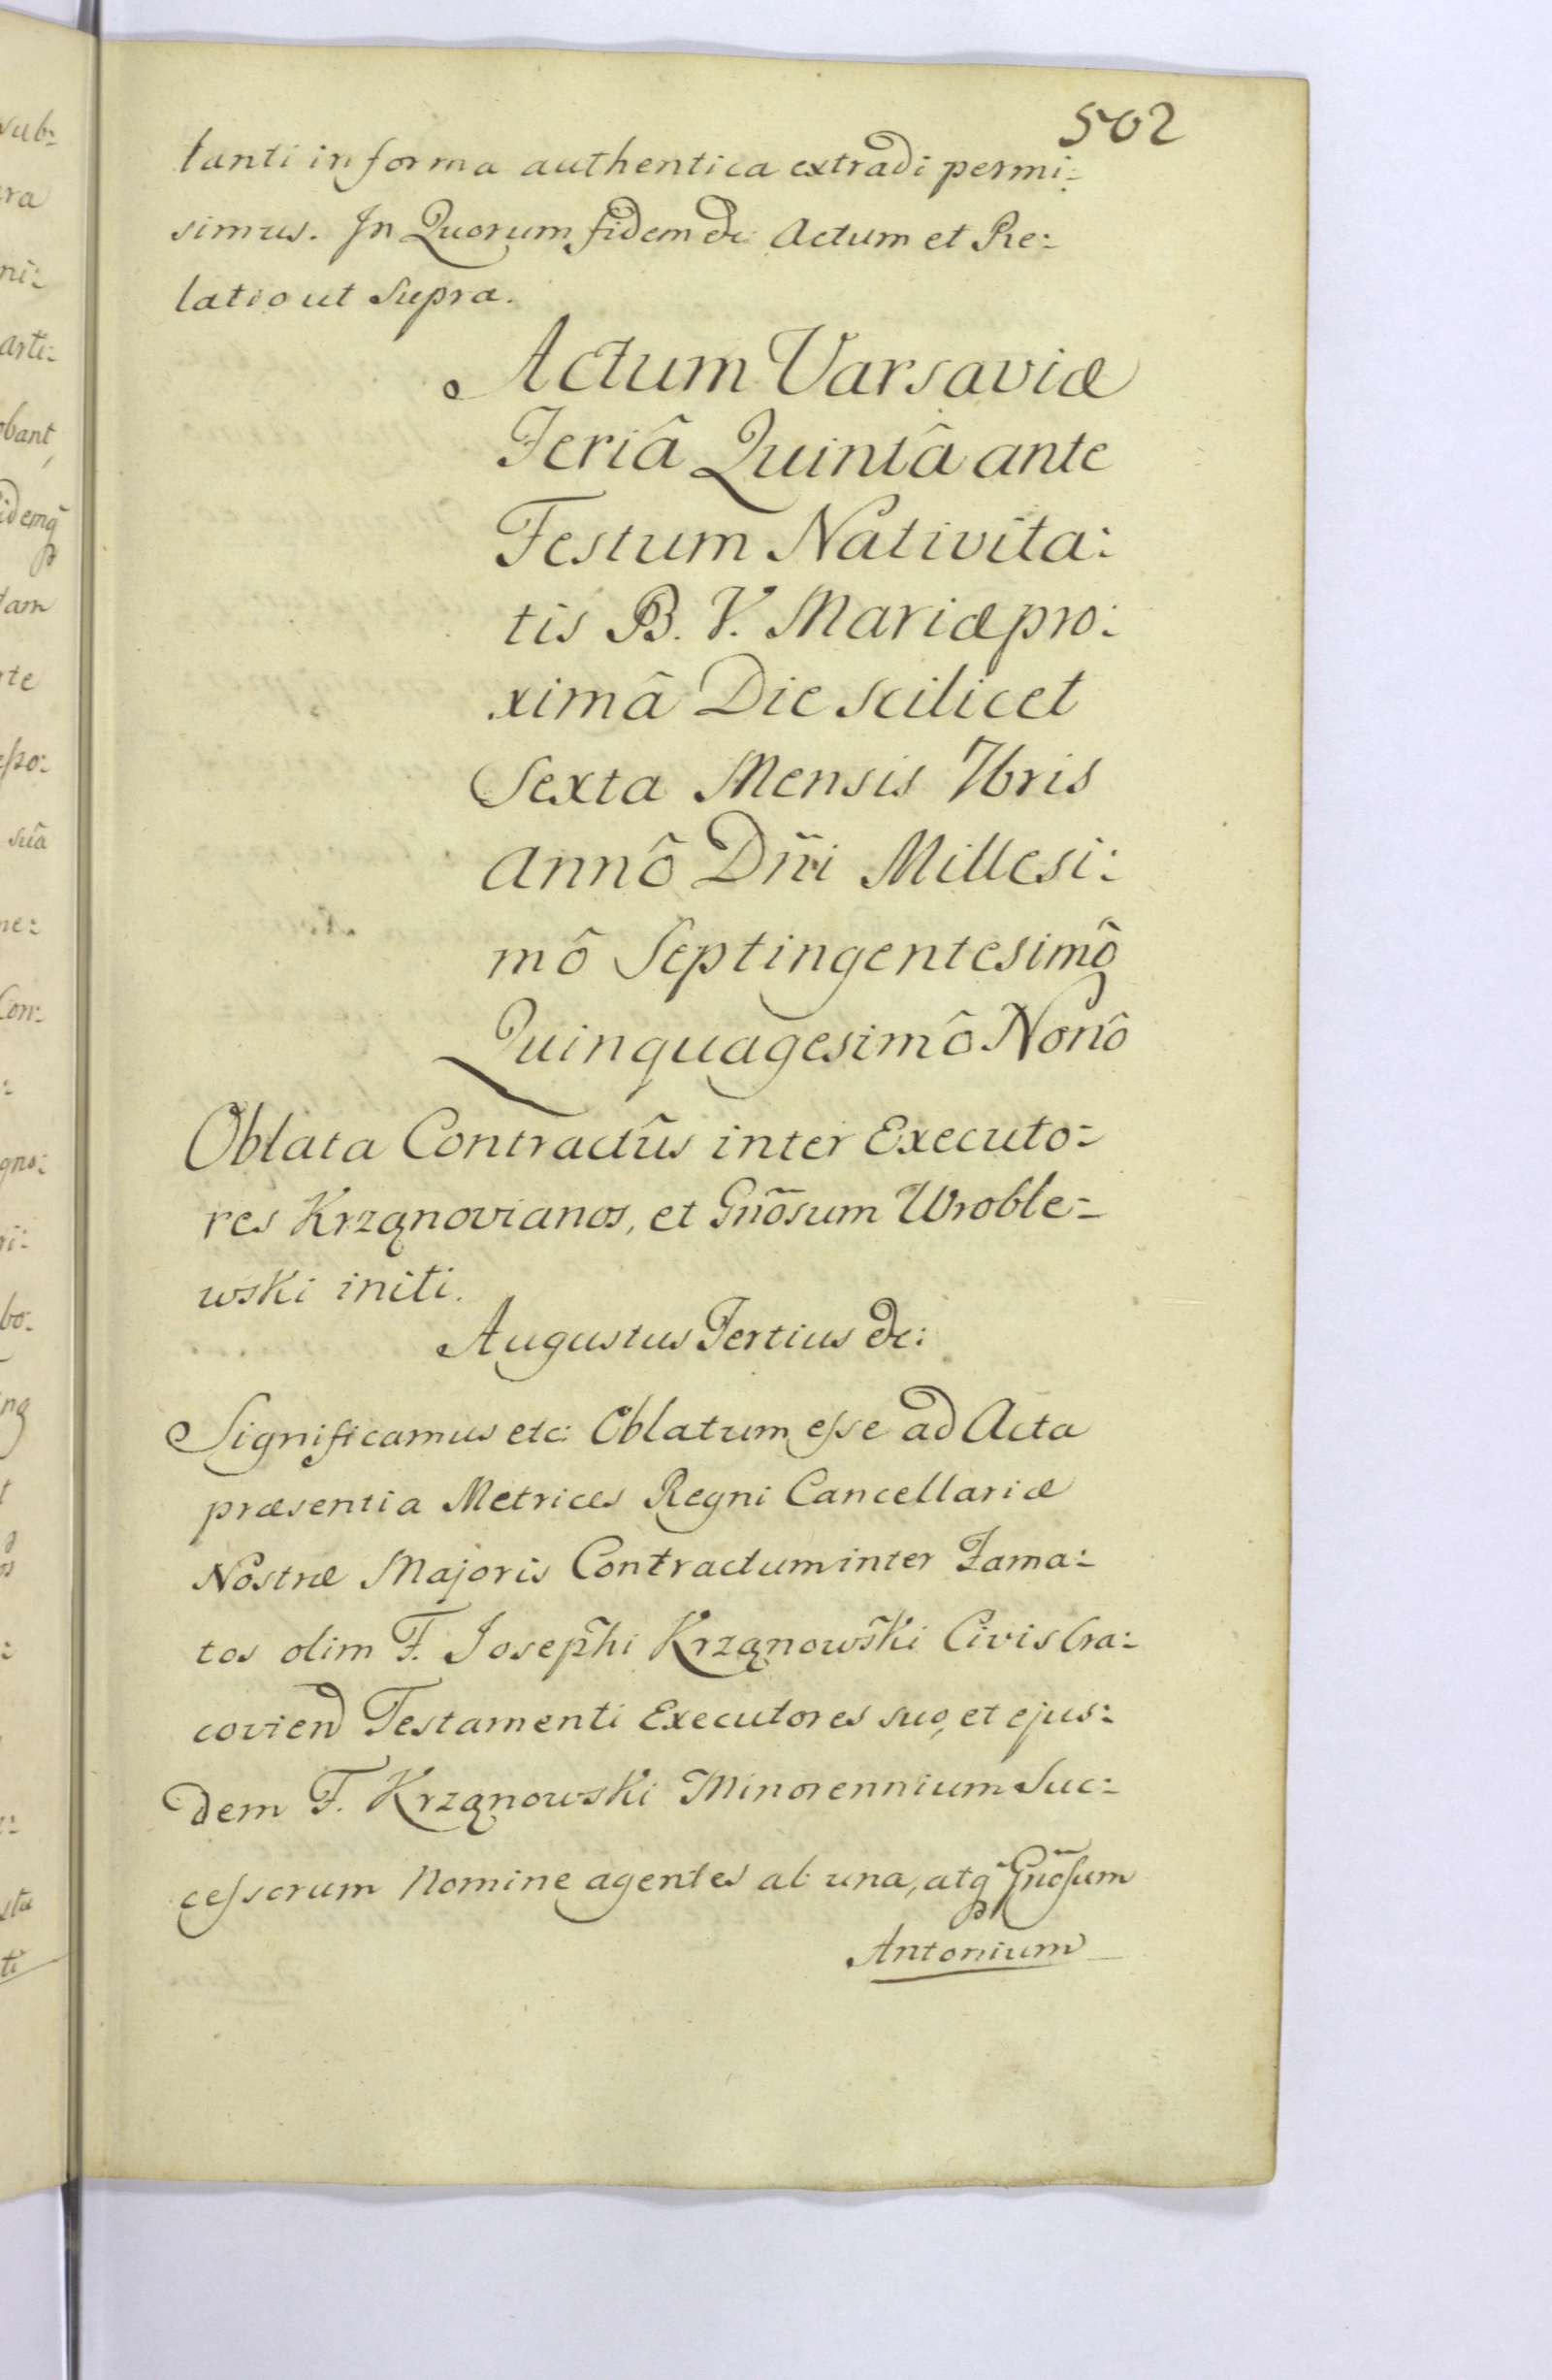 502
tanti in forma authentica extradi permi:
simus. In Quorum fidem &c: Actum et Re:
latio ut Supra.
Actum Varsaviæ
Feriâ Quintâ ante
Festum Nativita:
tis B. V. Mariæ pro:
ximâ Die scilicet
Sexta Mensis 7bris
Annô Dñi Millesi:
mô Septingentesimô
Quinquagesimô Nonô
Oblata Contractûs inter Executo:
res Krząnovianos, et Gñosum Wroble:
wski initi.
Augustus Tertius &c:
Significamus etc: Oblatum esse ad Acta
præsentia Metrices Regni Cancellariæ
Nostræ Majoris Contractum inter Fama:
tos olim F. Josephi Krząnowski Civis Cra:
covien Testamenti Executores suo, et ejus:
dem F. Krząnowski Minorennium Suc:
cessorum Nomine agentes ab una, atq Gñosum
Antonium